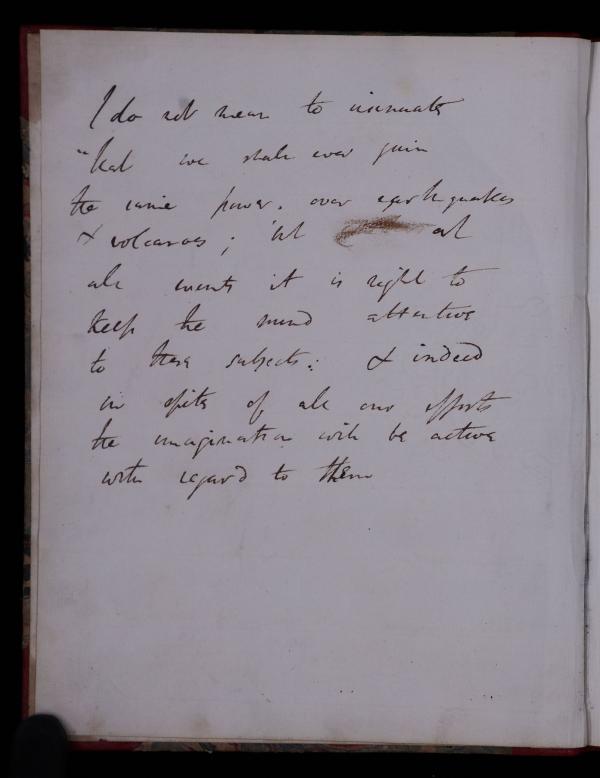 I do not mean to insinuate
"that we shall ever gain
the same power. over earthquakes
& volcanoes; but at
all events it is right to
keep the mind attentive
to these subjects: & indeed
in spite of all our efforts
the imagination will be active
with regard to them